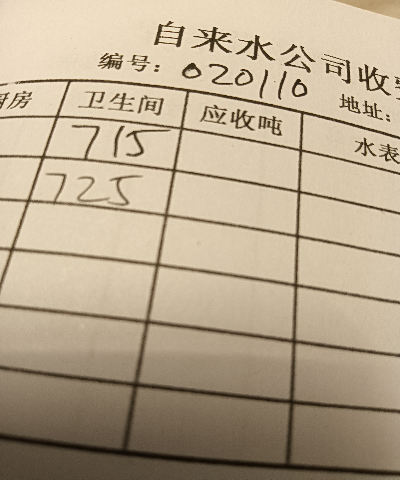 自来水公司收费
编号：020110 地址：
厨房 卫生间 应收吨 水表
715
725